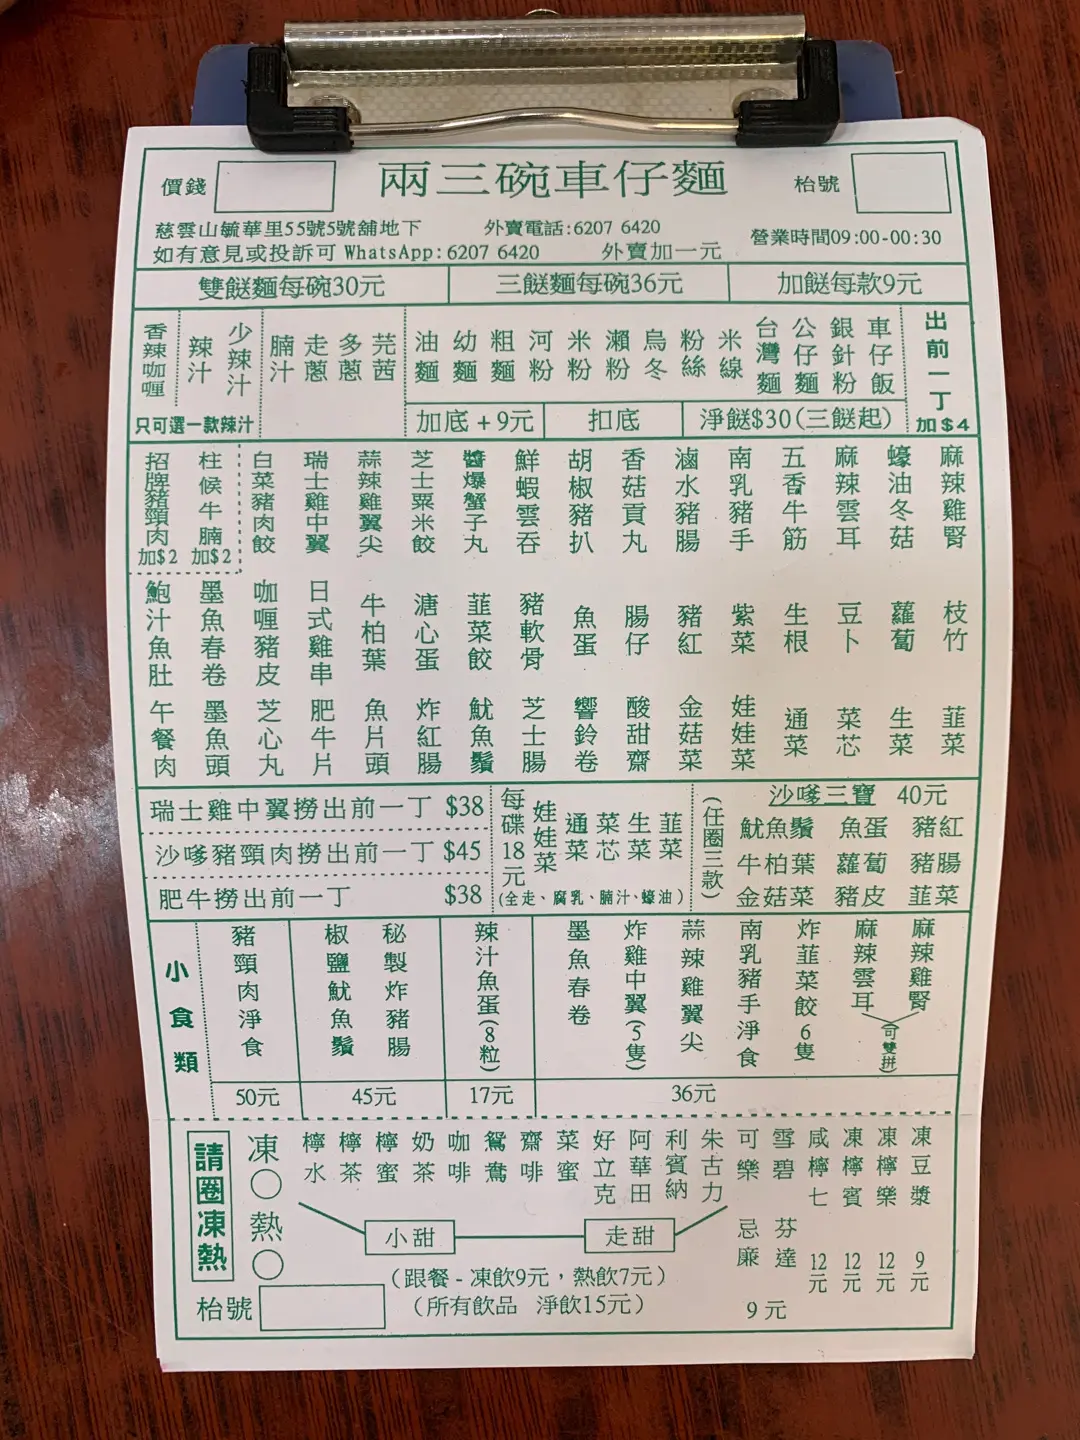 價錢
兩三碗車仔麵
枱號
慈雲山毓華里55號5號舖地下
外賣電話:6207 6420
如有意見或投訴可 WhatsApp:6207 6420
外賣加一元
營業時間09:00-00:30
雙餸麵每碗30元
三餸麵每碗36元
加餸每款9元
香辣咖喱
辣汁
少辣汁
只可選一款辣汁
腩汁
走蔥
多蔥
芫茜
油麵
幼麵
粗麵
河粉
米粉
瀨粉
烏冬
粉絲
米線
台灣麵
公仔麵
銀針粉
車仔飯
出前一丁
加$4
加底+9元
扣底
淨餸$30(三餸起)
招牌豬頸肉
加$2
柱候牛腩
加$2
白菜豬肉餃
瑞士雞中翼
蒜辣雞翼尖
芝士粟米餃
醬爆蟹子丸
鮮蝦雲吞
胡椒豬扒
香菇貢丸
滷水豬腸
南乳豬手
五香牛筋
麻辣雲耳
蠔油冬菇
麻辣雞腎
鮑汁魚肚
墨魚春卷
咖喱豬皮
日式雞串
牛柏葉
溏心蛋
韮菜餃
豬軟骨
魚蛋
腸仔
豬紅
紫菜
生根
豆卜
蘿蔔
枝竹
午餐肉
墨魚頭
芝心丸
肥牛片
魚片頭
炸紅腸
魷魚鬚
芝士腸
響鈴卷
酸甜齋
金菇菜
娃娃菜
通菜
菜芯
生菜
韮菜
瑞士雞中翼撈出前一丁 $38
沙嗲豬頸肉撈出前一丁 $45
肥牛撈出前一丁 $38
每碟18元
娃娃菜
通菜
菜芯
生菜
韮菜
(全走、腐乳、腩汁、蠔油)
(任圈三款)
沙嗲三寶 40元
魷魚鬚 魚蛋 豬紅
牛柏葉 蘿蔔 豬腸
金菇菜 豬皮 韮菜
小食類
豬頸肉淨食
50元
椒鹽魷魚鬚
秘製炸豬腸
45元
辣汁魚蛋(8粒)
17元
墨魚春卷
炸雞中翼(5隻)
蒜辣雞翼尖
南乳豬手淨食
炸韮菜餃6隻
麻辣雲耳
麻辣雞腎
(可雙拼)
36元
請圈凍熱
凍
熱
檸水
檸茶
檸蜜
奶茶
咖啡
鴛鴦
齋啡
菜蜜
好立克
阿華田
利賓納
朱古力
可樂
雪碧
忌廉
芬達
9元
咸檸七
12元
凍檸賓
12元
凍檸樂
12元
凍豆漿
9元
小甜
走甜
(跟餐 - 凍飲9元,熱飲7元)
(所有飲品 淨飲15元)
枱號